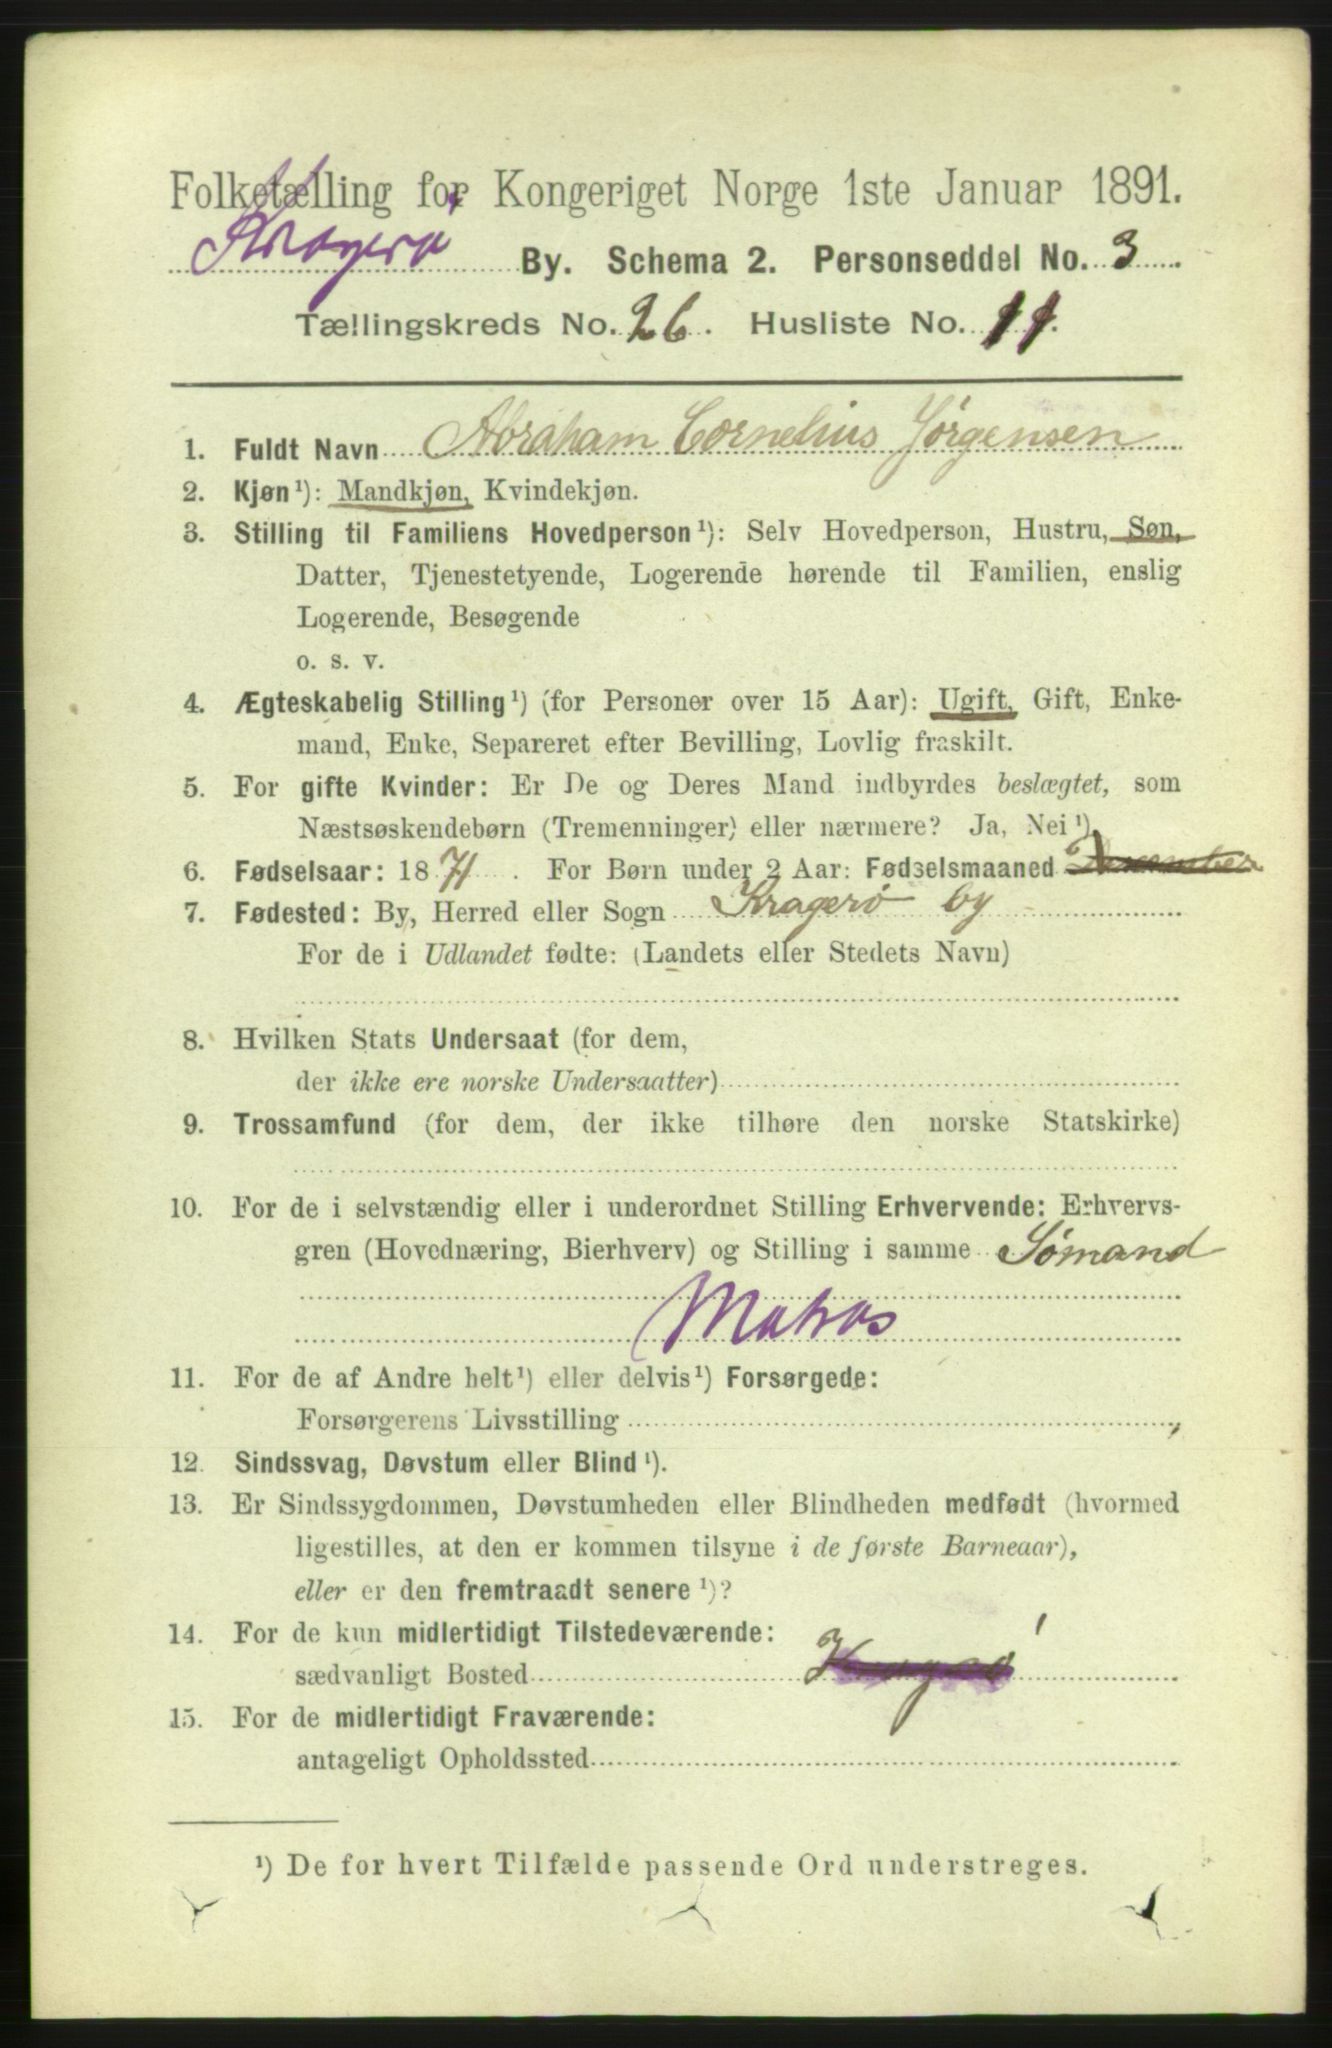 Folketælling for Kongeriget Norge 1ste Januar 1891.
Kragerø By. Schema 2. Personseddel No. 3.
Tællingskreds No. 26. Husliste No. 11.
1. Fuldt Navn Abraham Cornelius Jørgensen
2. Kjøn¹): Mandkjøn, Kvindekjøn.
3. Stilling til Familiens Hovedperson¹): Selv Hovedperson, Hustru, Søn,
Datter, Tjenestetyende, Logerende hørende til Familien, enslig
Logerende, Besøgende
o. s. v.
4. Ægteskabelig Stilling¹) (for Personer over 15 Aar): Ugift, Gift, Enke-
mand, Enke, Separeret efter Bevilling, Lovlig fraskilt.
5. For gifte Kvinder: Er De og Deres Mand indbyrdes beslægtet, som
Næstsøskendebørn (Tremenninger) eller nærmere? Ja, Nei¹)
6. Fødselsaar: 1871. For Børn under 2 Aar: Fødselsmaaned December
7. Fødested: By, Herred eller Sogn Kragerø by
For de i Udlandet fødte: (Landets eller Stedets Navn)
8. Hvilken Stats Undersaat (for dem,
der ikke ere norske Undersaatter)
9. Trossamfund (for dem, der ikke tilhøre den norske Statskirke)
10. For de i selvstændig eller i underordnet Stilling Erhvervende: Erhvervs-
gren (Hovednæring, Bierhverv) og Stilling i samme Sømand
Matros
11. For de af Andre helt¹) eller delvis¹) Forsørgede:
Forsørgerens Livsstilling
12. Sindssvag, Døvstum eller Blind¹).
13. Er Sindssygdommen, Døvstumheden eller Blindheden medfødt (hvormed
ligestilles, at den er kommen tilsyne i de første Barneaar),
eller er den fremtraadt senere¹)?
14. For de kun midlertidigt Tilstedeværende:
sædvanligt Bosted Kragerø
15. For de midlertidigt Fraværende:
antageligt Opholdssted
¹) De for hvert Tilfælde passende Ord understreges.